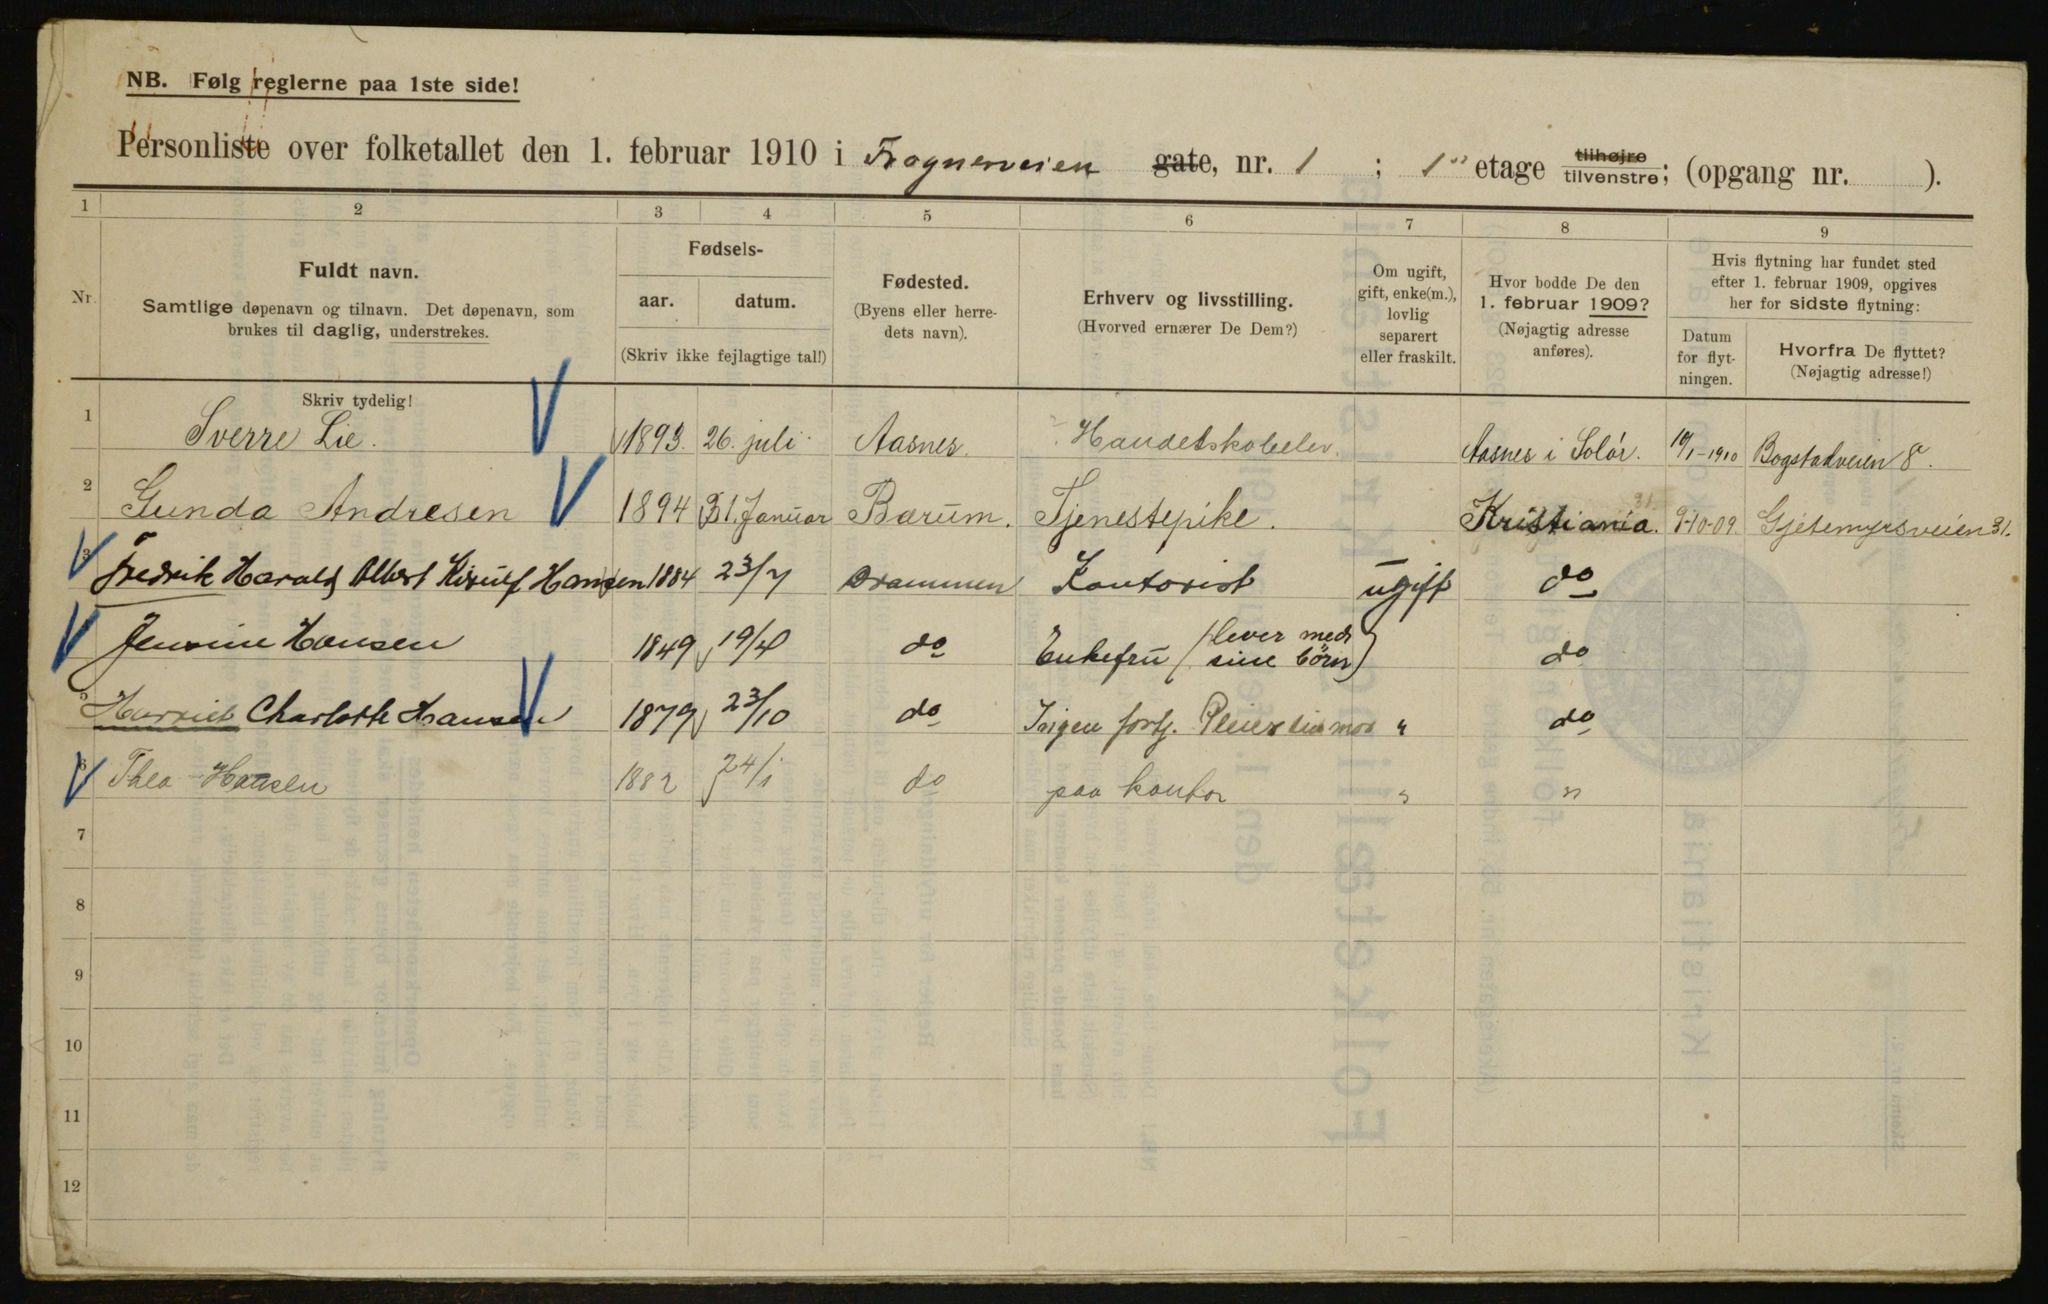 NB. Følg reglerne paa 1ste side!
Personliste over folketallet den 1. februar 1910 i Frognerveien gate, nr. 1 ; 1ste etage tilhøjre tilvenstre; (opgang nr. ).
1 2 3 4 5 6 7 8 9
Nr.
Fuldt navn.
Samtlige døpenavn og tilnavn. Det døpenavn, som
brukes til daglig, understrekes.
Skriv tydelig!
Fødsels-
aar. datum.
(Skriv ikke fejlagtige tal!)
Fødested.
(Byens eller herre-
dets navn).
Erhverv og livsstilling.
(Hvorved ernærer De Dem?)
Om ugift,
gift, enke(m.),
lovlig
separert
eller fraskilt.
Hvor bodde De den
1. februar 1909?
(Nøjagtig adresse
anføres).
Hvis flytning har fundet sted
efter 1. februar 1909, opgives
her for sidste flytning:
Datum
for flyt-
ningen.
Hvorfra De flyttet?
(Nøjagtig adresse!)
1 Sverre Lie. 1893. 26. juli Aasnes. Handelskoleelev. Aasnes i Solør. 10/1-1910 Bogstadveien 8.
2 Gunda Andresen 1894 31. Januar Bærum. Tjenestepike. Kristiania. 9-10-09. Gjetemyrsveien 31.
3 Fredrik Harald Albert Hansen 1884 23/7 Drammen Kontorist ugift do
Jensine Hansen 1849 19/4 do Enkefru (lever med sine börn) do
5 Harriet Charlotte Hansen 1879 23/10 do Ingen fortj. Pleier sin mor " do
6 Thea Hansen 1882 24/1 do paa kontor " "
7
8
9
10
11
12